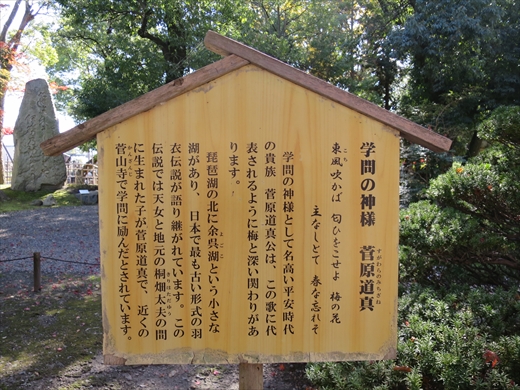 学問の神様　菅原道真
すがわらのみちざね
東風吹かば　匂ひをこせよ　梅の花
こち
主なしとて　春な忘れそ
学問の神様として名高い平安時代
の貴族　菅原道真公は、この歌に代
表されるように梅と深い関わりがあ
ります。
琵琶湖の北に余呉湖という小さな
よごこ
湖があり、日本で最も古い形式の羽
衣伝説が語り継がれています。この
伝説では天女と地元の桐畑太夫の間
きりはただゆう
に生まれた子が菅原道真で、近くの
菅山寺で学問に励んだとされています。
かんざんじ